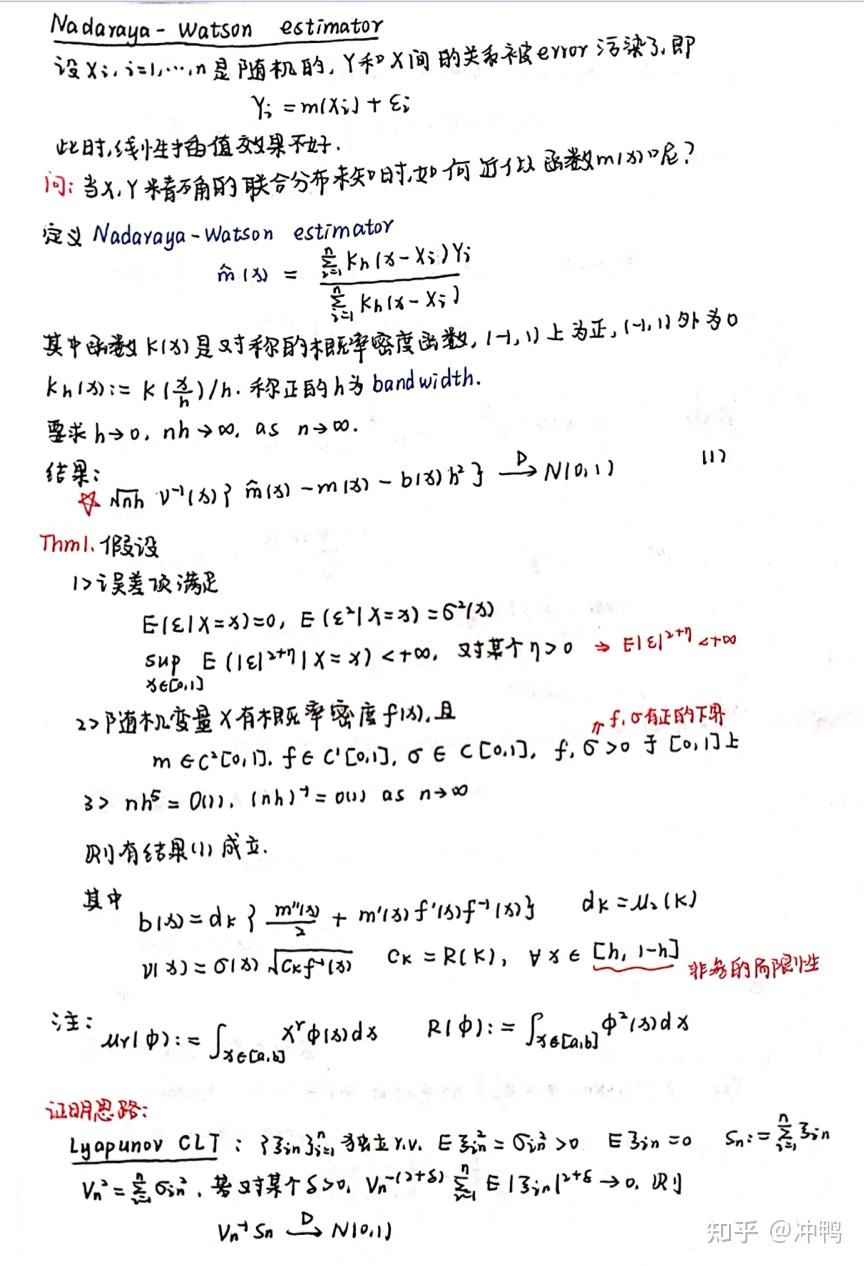 Nadaraya - Watson estimator
设 Xi, i=1,…,n 是随机的, Y和X间的关系被error污染了,即
Yi = m(Xi) + εi
此时,线性插值效果不好.
问: 当X,Y精确的联合分布未知时,如何近似函数m(x)呢?
定义 Nadaraya-Watson estimator
m̂(x) = Σ_{i=1}^n Kh(x-Xi)Yi / Σ_{i=1}^n Kh(x-Xi)
其中函数K(x)是对称的概率密度函数, (-1,1)上为正, (-1,1)外为0
Kh(x):= K(x/h)/h. 称正的h为bandwidth.
要求 h→0, nh→∞, as n→∞.
结果:
☆ √nh ν⁻¹(x){ m̂(x) - m(x) - b(x)h² } →D N(0,1) (1)
Thm1. 假设
1> 误差项满足
E(ε|X=x)=0, E(ε²|X=x)=σ²(x)
sup_{x∈[0,1]} E(|ε|^{2+η}|X=x) < +∞, 对某个η>0 ⇒ E|ε|^{2+η}<+∞
2> 随机变量X有概率密度f(x),且
⇒ f,σ有正的下界
m∈C²[0,1], f∈C¹[0,1], σ∈C[0,1], f,σ>0 于[0,1]上
3> nh⁵ = O(1), (nh)⁻¹ = o(1) as n→∞
则有结果(1)成立.
其中
b(x) = dK { m''(x)/2 + m'(x)f'(x)f⁻¹(x) } dK = μ₂(K)
ν(x) = σ(x)√(CK f⁻¹(x)) CK = R(K), ∀x∈[h, 1-h] 非参的局限性
注: μr(φ):= ∫_{x∈[a,b]} x^r φ(x)dx R(φ):= ∫_{x∈[a,b]} φ²(x)dx
证明思路:
Lyapunov CLT : {ξin}_{i=1}^n 为独立r.v. Eξin² = σin² >0 Eξin=0 Sn:= Σ_{i=1}^n ξin
Vn² = Σ_{i=1}^n σin², 若对某个δ>0, Vn^{-(2+δ)} Σ_{i=1}^n E|ξin|^{2+δ} → 0. 则
Vn⁻¹Sn →D N(0,1)
知乎 @冲鸭